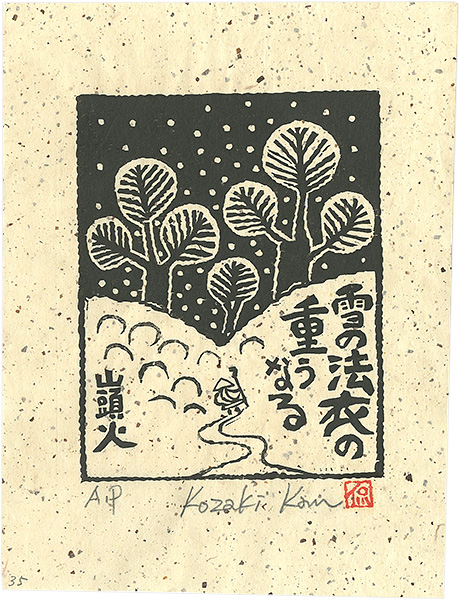 雪の法衣の
重うなる
山頭火
A.P
Kozaki Kan
侃
35